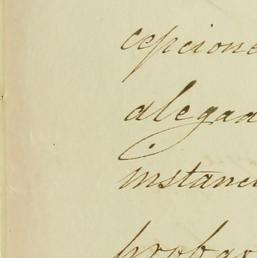 cepcione
alegad
instanci
probar